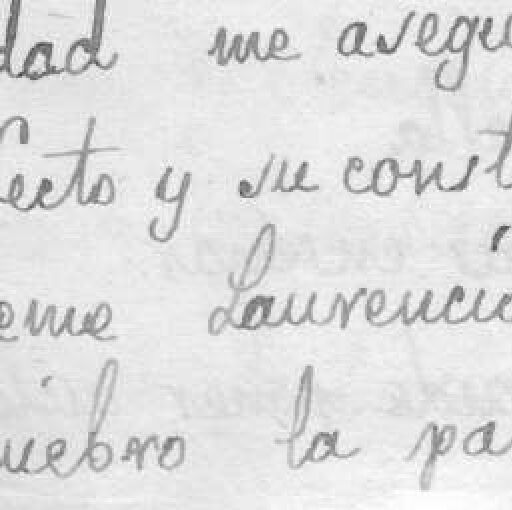 dad me asegu
fecto y su const
eme Laurenci
uiebro la pa